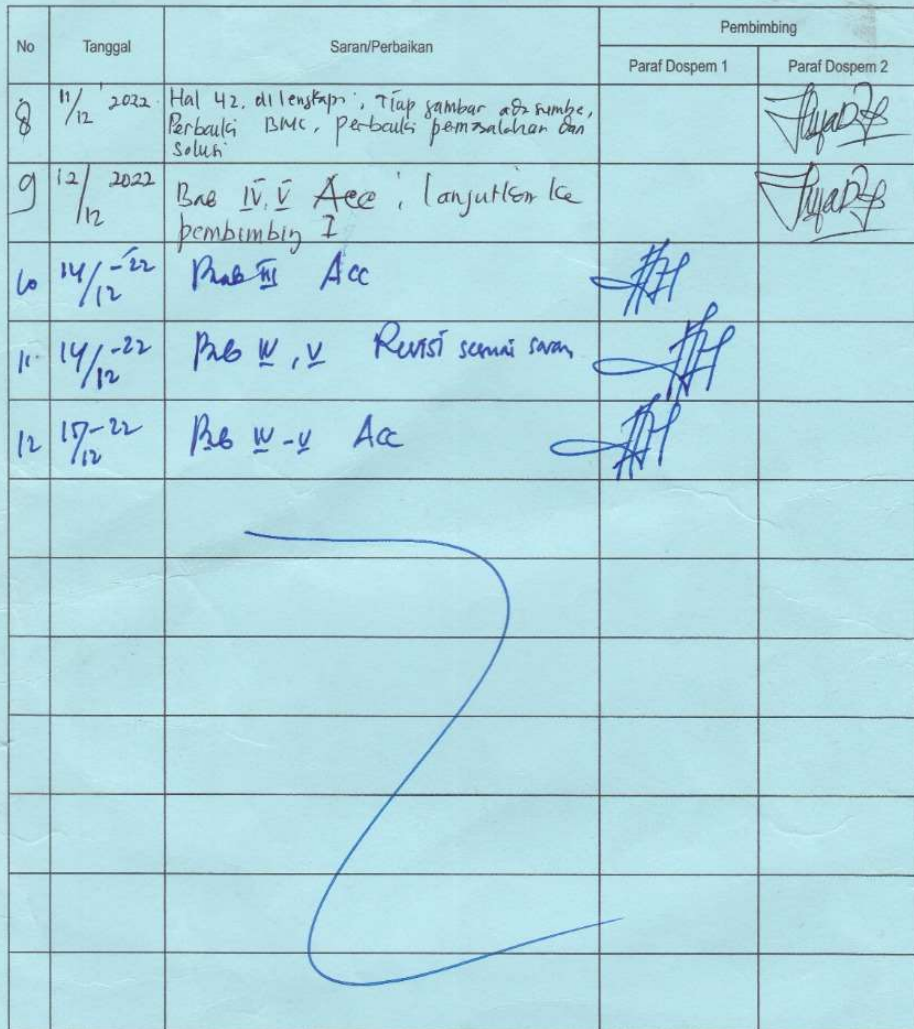 No Tanggal Saran/Perbaikan Pembimbing
Paraf Dospem 1 Paraf Dospem 2
8 11/12 2022 Hal 42, dilengkapi, Tiap gambar ada sumbe,
Perbaiki BMC, perbaiki pemasalahan dan
solusi
9 12/12 2022 Bab IV, V Acc, lanjutkan ke
pembimbing I
10 14/12 -22 Bab III Acc
11. 14/12 -22 Bab IV, V Revisi sesuai saran
12 15/12 -22 Bab IV - V Acc